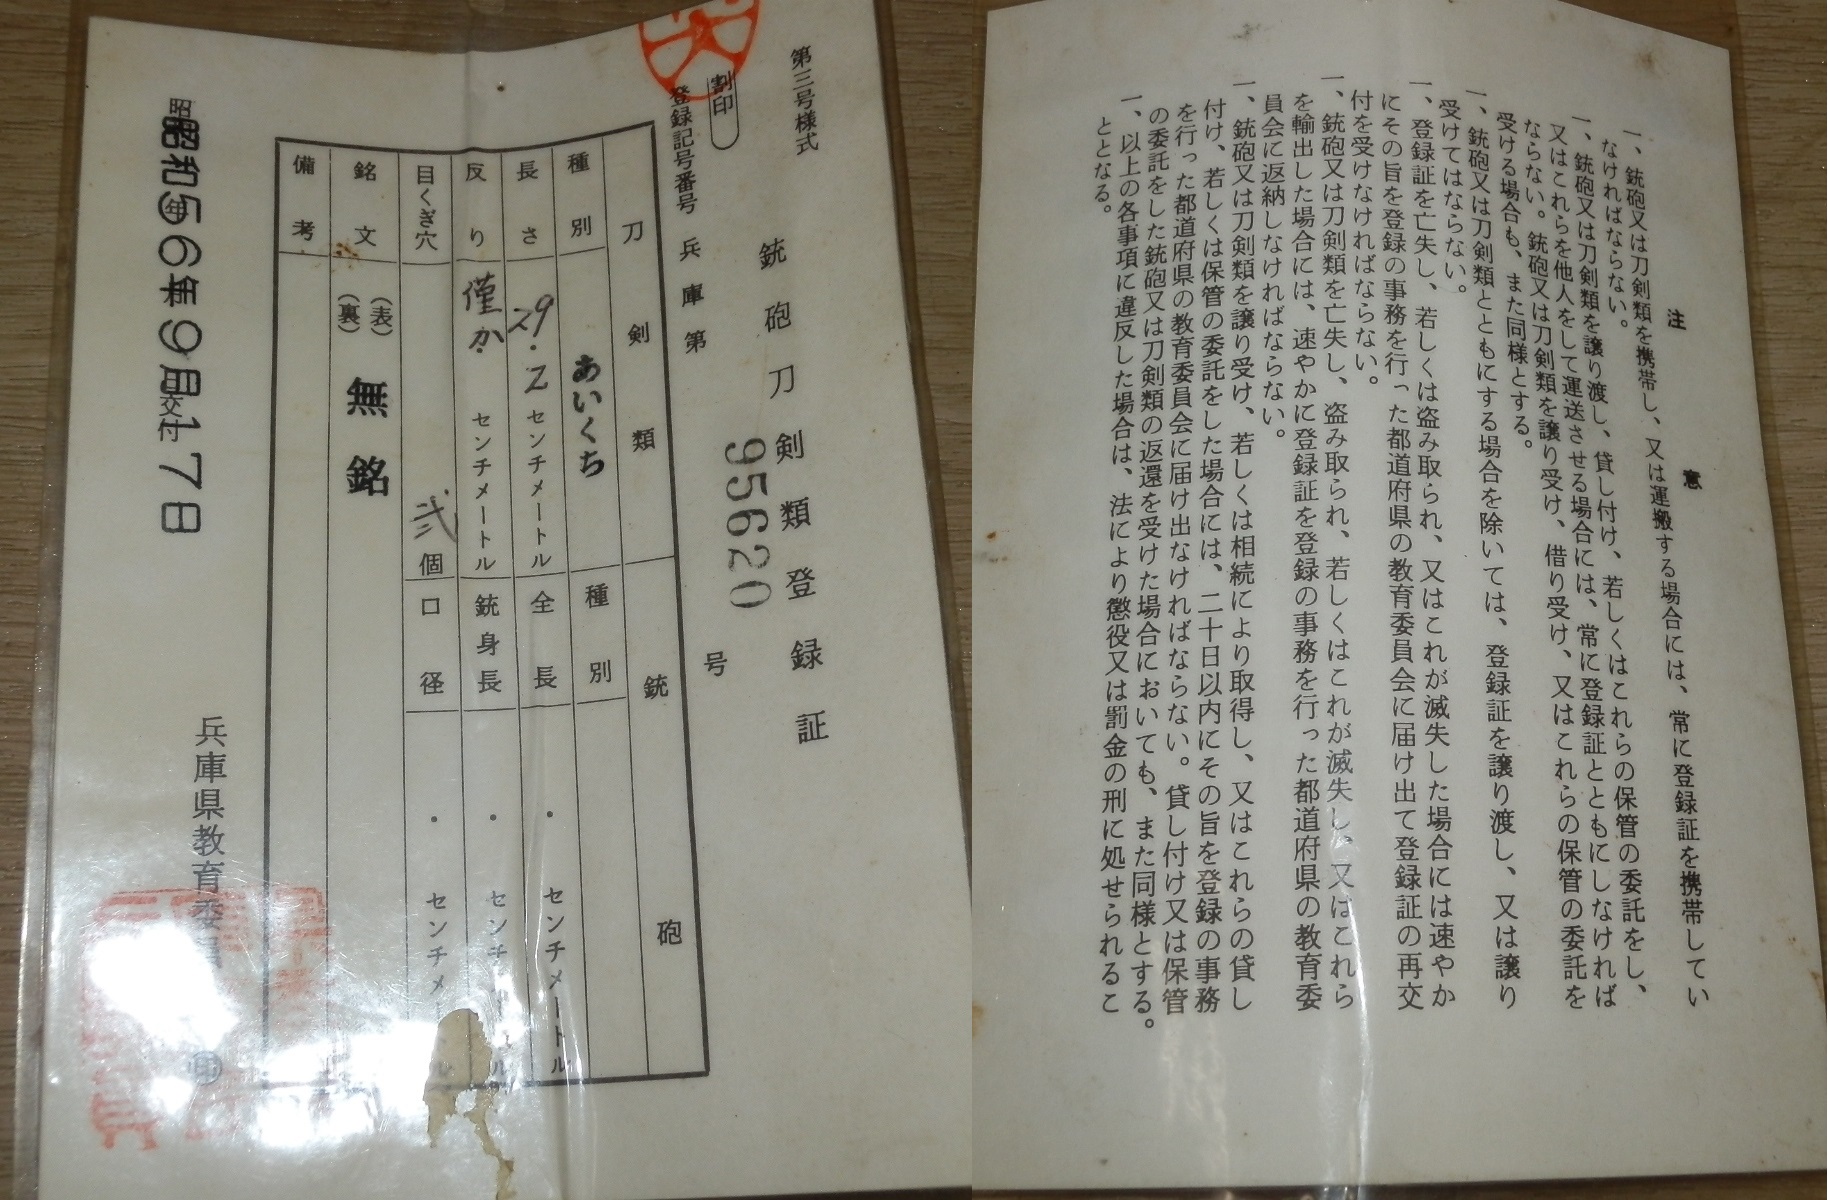 第三号様式
銃砲刀剣類登録証
割印
登録記号番号 兵庫第 95620 号
刀剣類
銃砲
種別 あいくち
種別
長さ 29.2 センチメートル
全長 ・ センチメートル
反り 僅か センチメートル
銃身長 ・
目くぎ穴 弐個
口径 ・ センチメ
銘文 (表) (裏) 無銘
備考
昭和56年9月17日
交付
兵庫県教育委員
注意
一、銃砲又は刀剣類を携帯し、又は運搬する場合には、常に登録証を携帯してい
なければならない。
一、銃砲又は刀剣類を譲り渡し、貸し付け、若しくはこれらの保管の委託をし、
又はこれらを他人をして運送させる場合には、常に登録証とともにしなければ
ならない。銃砲又は刀剣類を譲り受け、借り受け、又はこれらの保管の委託を
受ける場合も、また同様とする。
一、銃砲又は刀剣類とともにする場合を除いては、登録証を譲り渡し、又は譲り
受けてはならない。
一、登録証を亡失し、若しくは盗み取られ、又はこれが滅失した場合には速やか
にその旨を登録の事務を行った都道府県の教育委員会に届け出て登録証の再交
付を受けなければならない。
一、銃砲又は刀剣類を亡失し、盗み取られ、若しくはこれが滅失し、又はこれら
を輸出した場合には、速やかに登録証を登録の事務を行った都道府県の教育委
員会に返納しなければならない。
一、銃砲又は刀剣類を譲り受け、若しくは相続により取得し、又はこれらの貸し
付け、若しくは保管の委託をした場合には、二十日以内にその旨を登録の事務
を行った都道府県の教育委員会に届け出なければならない。貸し付け又は保管
の委託をした銃砲又は刀剣類の返還を受けた場合においても、また同様とする。
一、以上の各事項に違反した場合は、法により懲役又は罰金の刑に処せられるこ
ととなる。